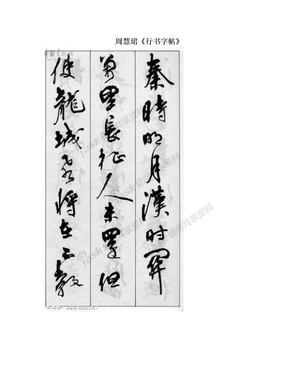 周慧珺《行书字帖》
秦時明月漢时関
万里長征人未還但
使龍城飞将在不教